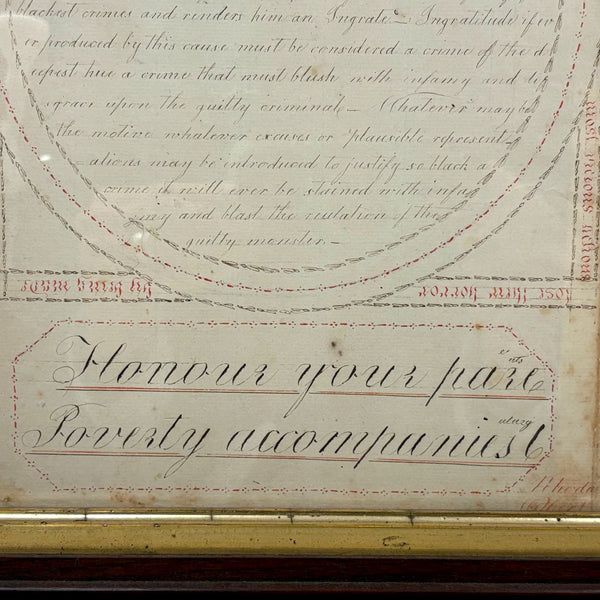 blackest crimes and renders him an Ingrate – Ingratitude if ev
er produced by this cause must be considered a crime of the d
eepest hue a crime that must blush with infamy and di
sgrace upon the guilty criminal – Whatever may be
the motive whatever excuses or plausible represent
ations may be introduced to justify so black a
crime it will ever be stained with infa
my and blast the reputation of the
guilty monster. –
most vicious actions
Honour your pare
ents
Poverty accompanies l
uxury
Rhoda